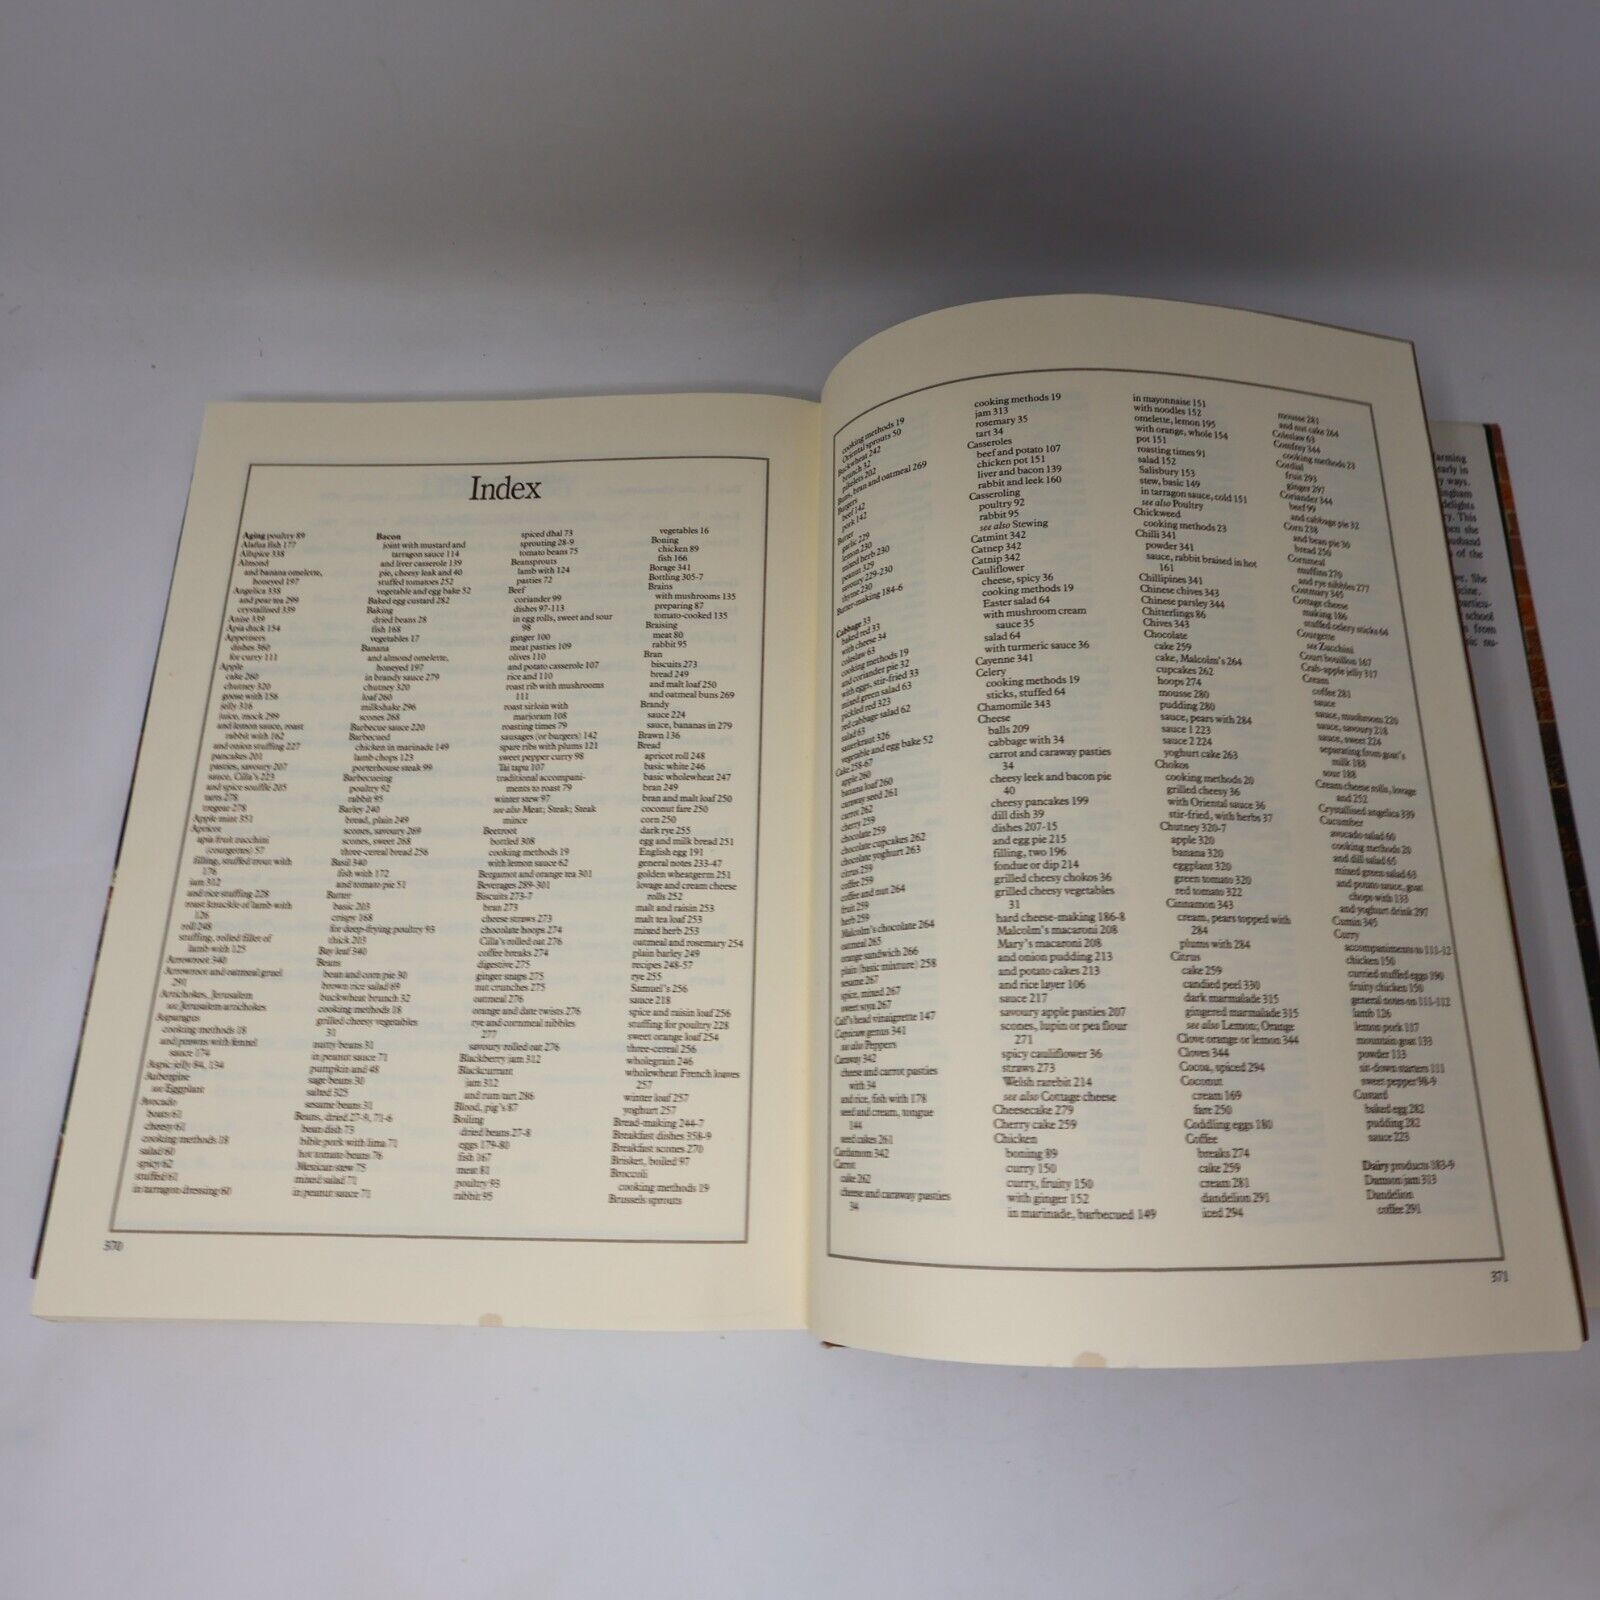 Index
Aging poultry 89
Alafua fish 177
Allspice 338
Almond
and banana omelette,
honeyed 197
Angelica 338
and pear tea 299
crystallised 339
Anise 339
Apia duck 154
Appetisers
dishes 360
for curry 111
Apple
cake 260
chutney 320
goose with 158
jelly 316
juice, mock 299
and lemon sauce, roast
rabbit with 162
and onion stuffing 227
pancakes 201
pasties, savoury 207
sauce, Cilla's 223
and spice souffle 205
tarts 278
Apple mint 351
Apricot
apia fruit zucchini
(courgettes) 57
filling, stuffed trout with
176
jam 312
and rice stuffing 228
roast knuckle of lamb with
126
roll 248
stuffing, rolled fillet of
lamb with 125
Arrowroot 340
Arrowroot and oatmeal gruel
291
Artichokes, Jerusalem
see Jerusalem artichokes
Asparagus
cooking methods 18
and prawns with fennel
sauce 174
Aspic jelly 84, 134
Aubergine
see Eggplant
Avocado
boats 61
cheesy 61
cooking methods 18
salad 60
spicy 62
stuffed 61
in tarragon dressing 60
Bacon
joint with mustard and
tarragon sauce 114
and liver casserole 139
pie, cheesy leak and 40
stuffed tomatoes 252
vegetable and egg bake 52
Baked egg custard 282
Baking
dried beans 28
fish 168
vegetables 17
Banana
and almond omelette,
honeyed 197
in brandy sauce 279
chutney 320
loaf 260
milkshake 296
scones 268
Barbecue sauce 220
Barbecued
chicken in marinade 149
lamb chops 123
porterhouse steak 99
Barbecueing
poultry 92
rabbit 95
Barley 240
bread, plain 249
scones, savoury 269
scones, sweet 268
three-cereal bread 256
Basil 340
fish with 172
and tomato pie 51
Batter
basic 203
crispy 168
for deep-frying poultry 93
thick 203
Bay leaf 340
Beans
bean and corn pie 30
brown rice salad 69
buckwheat brunch 32
cooking methods 18
grilled cheesy vegetables
31
nutty beans 31
in peanut sauce 71
pumpkin and 48
sage beans 30
salted 325
sesame beans 31
Beans, dried 27-9, 71-6
bean dish 73
bible pork with lima 71
hot tomato beans 76
Mexican stew 75
mixed salad 71
in peanut sauce 71
spiced dhal 73
sprouting 28-9
tomato beans 75
Beansprouts
lamb with 124
pasties 72
Beef
coriander 99
dishes 97-113
in egg rolls, sweet and sour
98
ginger 100
meat pasties 109
olives 110
and potato casserole 107
rice and 110
roast rib with mushrooms
111
roast sirloin with
marjoram 108
roasting times 79
sausages (or burgers) 142
spare ribs with plums 121
sweet pepper curry 98
Tai tapu 107
traditional accompani-
ments to roast 79
winter stew 97
see also Meat; Steak; Steak
mince
Beetroot
bottled 308
cooking methods 19
with lemon sauce 62
Bergamot and orange tea 301
Beverages 289-301
Biscuits 273-7
bran 273
cheese straws 273
chocolate hoops 274
Cilla's rolled oat 276
coffee breaks 274
digestive 275
ginger snaps 275
nut crunches 275
oatmeal 276
orange and date twists 276
rye and cornmeal nibbles
277
savoury rolled oat 276
Blackberry jam 312
Blackcurrant
jam 312
and rum tart 286
Blood, pig's 87
Boiling
dried beans 27-8
eggs 179-80
fish 167
meat 81
poultry 93
rabbit 95
vegetables 16
Boning
chicken 89
fish 166
Borage 341
Bottling 305-7
Brains
with mushrooms 135
preparing 87
tomato-cooked 135
Braising
meat 80
rabbit 95
Bran
biscuits 273
bread 249
and malt loaf 250
and oatmeal buns 269
Brandy
sauce 224
sauce, bananas in 279
Brawn 136
Bread
apricot roll 248
basic white 246
basic wholewheat 247
bran 249
bran and malt loaf 250
coconut fare 250
corn 250
dark rye 255
egg and milk bread 251
English egg 191
general notes 233-47
golden wheatgerm 251
lovage and cream cheese
rolls 252
malt and raisin 253
malt tea loaf 253
mixed herb 253
oatmeal and rosemary 254
plain barley 249
recipes 248-57
rye 255
Samuel's 256
sauce 218
spice and raisin loaf 256
stuffing for poultry 228
sweet orange loaf 254
three-cereal 256
wholegrain 246
wholewheat French loaves
257
winter loaf 257
yoghurt 257
Bread-making 244-7
Breakfast dishes 358-9
Breakfast scones 270
Brisket, boiled 97
Broccoli
cooking methods 19
Brussels sprouts
370
cooking methods 19
Oriental sprouts 50
Buckwheat 242
brunch 32
pikelets 202
Buns, bran and oatmeal 269
Burgers
beef 142
pork 142
Butter
garlic 229
lemon 230
mixed herb 230
peanut 329
savoury 229-230
thyme 230
Butter-making 184-6
Cabbage 33
baked red 33
with cheese 34
coleslaw 63
cooking methods 19
and coriander pie 32
with eggs, stir-fried 33
mixed green salad 63
pickled red 323
red cabbage salad 62
salad 63
sauerkraut 326
vegetable and egg bake 52
Cake 258-67
apple 260
banana loaf 260
caraway seed 261
carrot 262
cherry 259
chocolate 259
chocolate cupcakes 262
chocolate yoghurt 263
citrus 259
coffee 259
coffee and nut 264
fruit 259
herb 259
Malcolm's chocolate 264
oatmeal 265
orange sandwich 266
plain (basic mixture) 258
sesame 267
spice, mixed 267
sweet soya 267
Calf's head vinaigrette 147
Capsicum genus 341
see also Peppers
Caraway 342
cheese and carrot pasties
with 34
and rice, fish with 178
seed and cream, tongue
144
seed cakes 261
Cardamom 342
Carrot
cake 262
cheese and caraway pasties
34
cooking methods 19
jam 313
rosemary 35
tart 34
Casseroles
beef and potato 107
chicken pot 151
liver and bacon 139
rabbit and leek 160
Casseroling
poultry 92
rabbit 95
see also Stewing
Catmint 342
Catnep 342
Catnip 342
Cauliflower
cheese, spicy 36
cooking methods 19
Easter salad 64
with mushroom cream
sauce 35
salad 64
with turmeric sauce 36
Cayenne 341
Celery
cooking methods 19
sticks, stuffed 64
Chamomile 343
Cheese
balls 209
cabbage with 34
carrot and caraway pasties
34
cheesy leek and bacon pie
40
cheesy pancakes 199
dill dish 39
dishes 207-15
and egg pie 215
filling, two 196
fondue or dip 214
grilled cheesy chokos 36
grilled cheesy vegetables
31
hard cheese-making 186-8
Malcolm's macaroni 208
Mary's macaroni 208
and onion pudding 213
and potato cakes 213
and rice layer 106
sauce 217
savoury apple pasties 207
scones, lupin or pea flour
271
spicy cauliflower 36
straws 273
Welsh rarebit 214
see also Cottage cheese
Cheesecake 279
Cherry cake 259
Chicken
boning 89
curry 150
curry, fruity 150
with ginger 152
in marinade, barbecued 149
in mayonnaise 151
with noodles 152
omelette, lemon 195
with orange, whole 154
pot 151
roasting times 91
salad 152
Salisbury 153
stew, basic 149
in tarragon sauce, cold 151
see also Poultry
Chickweed
cooking methods 23
Chilli 341
powder 341
sauce, rabbit braised in hot
161
Chillipines 341
Chinese chives 343
Chinese parsley 344
Chitterlings 86
Chives 343
Chocolate
cake 259
cake, Malcolm's 264
cupcakes 262
hoops 274
mousse 280
pudding 280
sauce, pears with 284
sauce 1 223
sauce 2 224
yoghurt cake 263
Chokos
cooking methods 20
grilled cheesy 36
with Oriental sauce 36
stir-fried, with herbs 37
Chutney 320-7
apple 320
banana 320
eggplant 320
green tomato 320
red tomato 322
Cinnamon 343
cream, pears topped with
284
plums with 284
Citrus
cake 259
candied peel 330
dark marmalade 315
gingered marmalade 315
see also Lemon; Orange
Clove orange or lemon 344
Cloves 344
Cocoa, spiced 294
Coconut
cream 169
fare 250
Coddling eggs 180
Coffee
breaks 274
cake 259
cream 281
dandelion 291
iced 294
mousse 281
and nut cake 264
Coleslaw 63
Comfrey 344
cooking methods 23
Cordial
fruit 293
ginger 297
Coriander 344
beef 99
and cabbage pie 32
Corn 238
and bean pie 30
bread 250
Cornmeal
muffins 270
and rye nibbles 277
Costmary 345
Cottage cheese
making 186
stuffed celery sticks 64
Courgette
see Zucchini
Court bouillon 167
Crab-apple jelly 317
Cream
coffee 281
sauce
sauce, mushroom 220
sauce, savoury 218
sauce, sweet 224
separating from goat's
milk 188
sour 188
Cream cheese rolls, lovage
and 252
Crystallised angelica 339
Cucumber
avocado salad 60
cooking methods 20
and dill salad 65
mixed green salad 63
and potato sauce, goat
chops with 133
and yoghurt drink 297
Cumin 345
Curry
accompaniments to 111-12
chicken 150
curried stuffed eggs 190
fruity chicken 150
general notes on 111-112
lamb 126
lemon pork 117
mountain goat 133
powder 113
sit-down starters 111
sweet pepper 98-9
Custard
baked egg 282
pudding 282
sauce 223
Dairy products 183-9
Damson jam 313
Dandelion
coffee 291
371